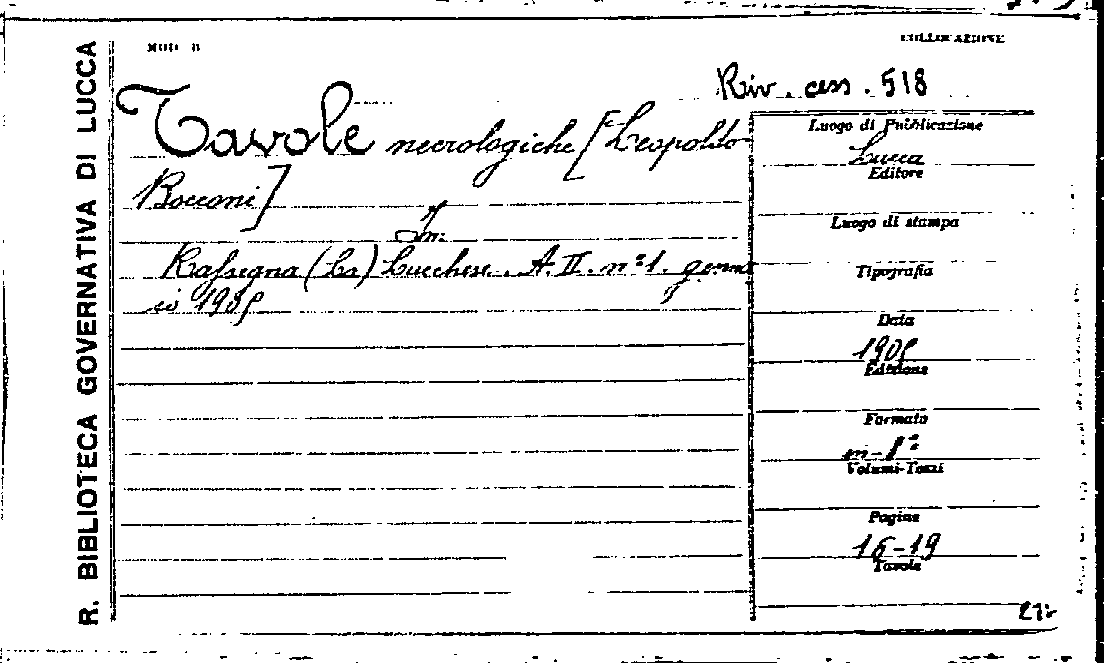 R. BIBLIOTECA GOVERNATIVA DI LUCCA
MOD. B
COLLOCAZIONE
Riv. cess. 518
Tavole necrologiche [Leopoldo
Bocconi]
In:
Rassegna (La) Lucchese. A. II. n° 1. genna
io 1905
Luogo di Pubblicazione
Lucca
Editore
Luogo di stampa
Tipografia
Data
1905
Edizione
Formato
in-8°
Volumi-Tomi
Pagine
16-19
Tavole